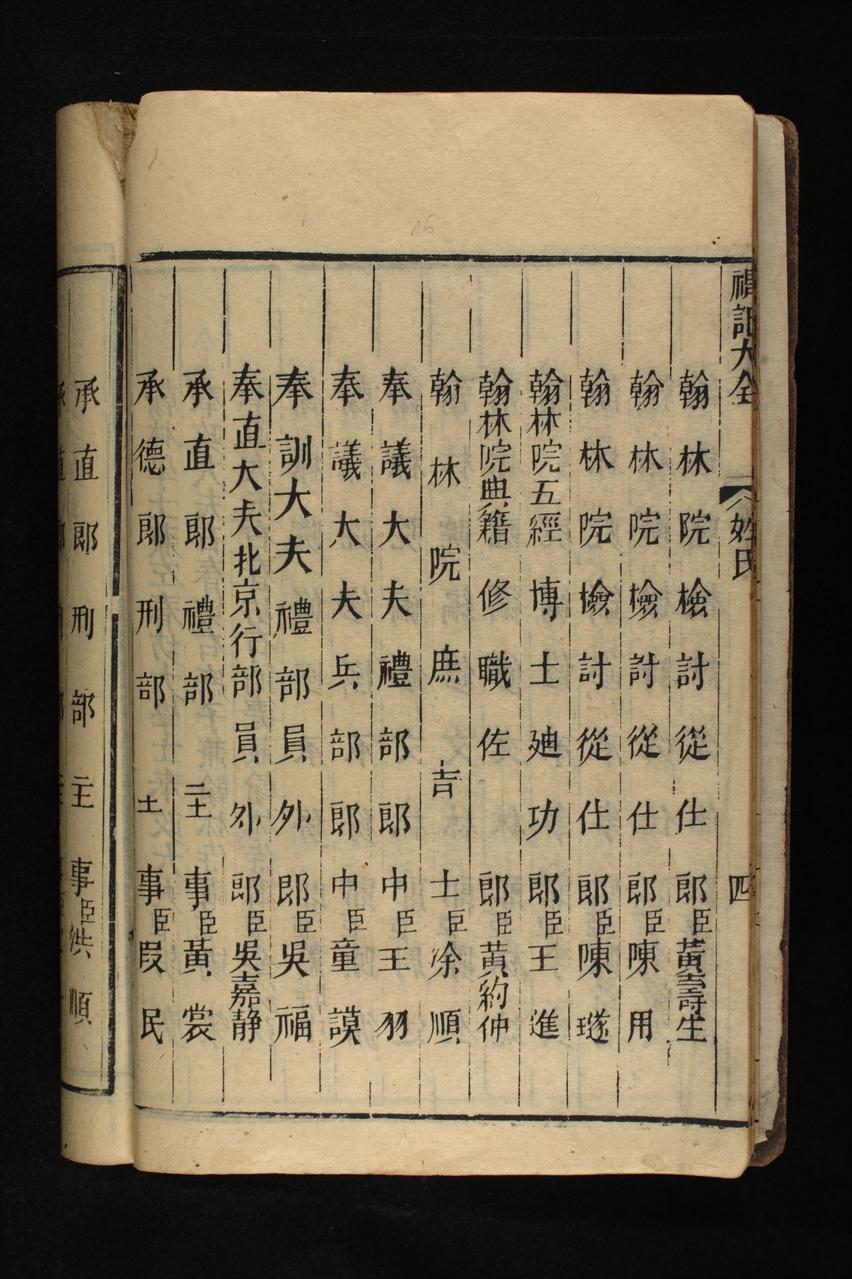 禮記大全 姓氏 四
翰林院檢討從仕郎臣黃壽生
翰林院檢討從仕郎臣陳用
翰林院檢討從仕郎臣陳璲
翰林院五經博士廸功郎臣王進
翰林院典籍修職佐郎臣黃約仲
翰林院庶吉士臣涂順
奉議大夫禮部郎中臣王羽
奉議大夫兵部郎中臣童謨
奉訓大夫禮部員外郎臣吳福
奉直大夫北京行部員外郎臣吳嘉静
承直郎禮部主事臣黃裳
承德郎刑部主事臣段民
承直郎刑部主事臣洪順
16